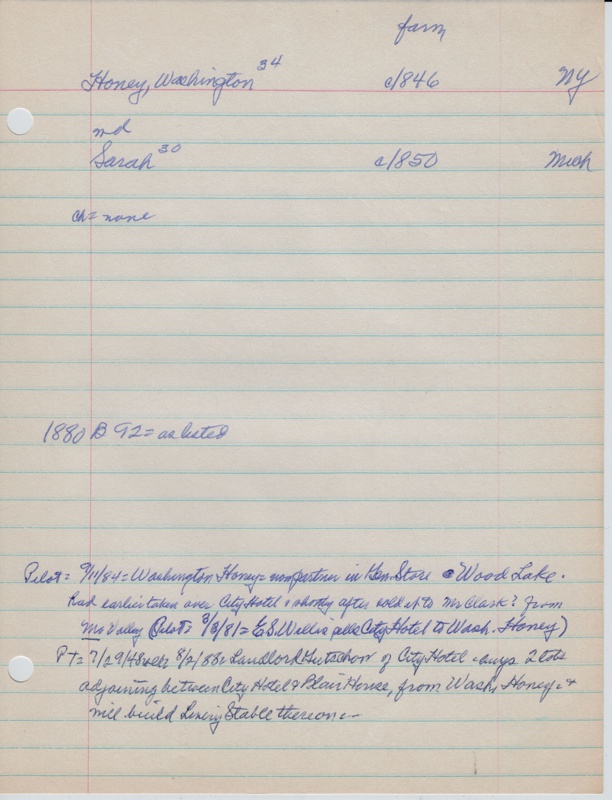 farm
Honey, Washington 34 c/846 NY
md
Sarah 30 c/850 Mich
ch = none
1880 B 92 = as listed
Pilot = 9/11/84 = Washington Honey = now partner in Gen. Store @ Wood Lake.
Had earlier taken over City Hotel & shortly after sold it to Mr Clark? from
Mo Valley (Pilot = 3/3/81 = E.S. Willis sells City Hotel to Wash. Honey)
PT = 8/2/88 = Landlord of City Hotel - buys 2 lots
adjoining between City Hotel & Blair House, from Wash. Honey - &
will build Livery Stable thereon -